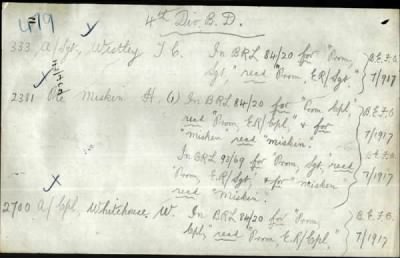 4th Div. B.D.
333, A/Sgt, Westley J. C. In BRL 84/20 for "Prom,
Sgt," read "Prom, ER/Sgt."
2381 Pte Miskin H. (1) In BRL 84/20 for "Prom, Cpl,"
read "Prom, ER/Cpl," & for
"Misken" read "Miskin."
In BRL 92/69 for "Prom, Sgt, read
"Prom, ER/Sgt," & for "Misken"
read "Miskin."
2700 A/Cpl, Whitehouse, W. In BRL 84/20 for "Prom,
Cpl," read "Prom, ER/Cpl."
B.E.F.O.
7/1917
B.E.F.O.
7/1917
B.E.F.O.
7/1917
B.E.F.O.
7/1917